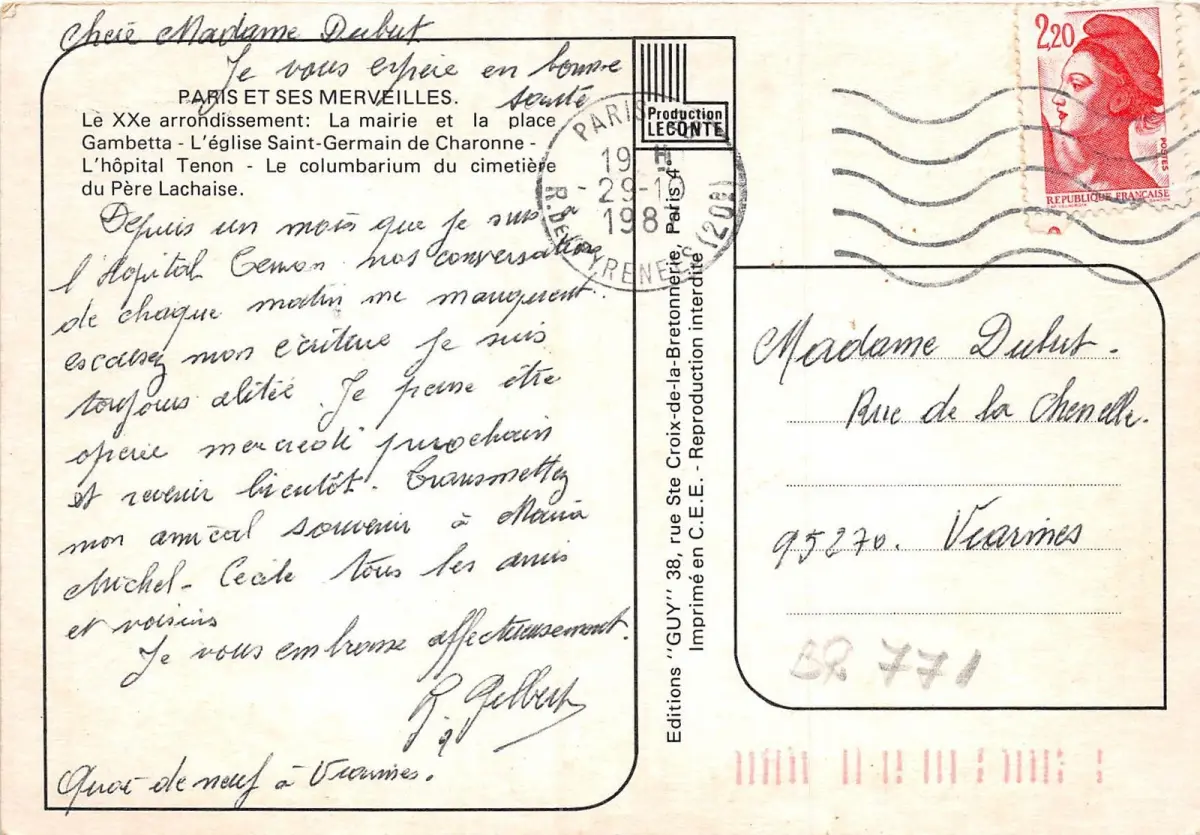 Chère Madame Dubut
Je vous espère en bonne
santé
PARIS ET SES MERVEILLES.
Lè XXe arrondissement: La mairie et la place
Gambetta - L'église Saint-Germain de Charonne -
L'hôpital Tenon - Le columbarium du cimetière
du Père Lachaise.
Depuis un mois que je suis à
l'Hopital Tenon nos conversations
de chaque matin me manquent.
escusez mon écriture je suis
toujours alitée. Je pense être
operée mercredi prochain
et revenir bientôt. Transmettez
mon amical souvenir à Maria
Michel - Cecile tous les amis
et voisins
Je vous embrasse affectueusement.
Gilbert
Quoi de neuf à Viarmes.
Production
LECONTE
Editions "GUY" 38, rue Ste Croix-de-la-Bretonnerie, Paris 4
Imprimé en C.E.E. - Reproduction interdite
PARIS
19 H
-29-10
198
R. DES PYRENEES (20e)
2,20
POSTES
REPUBLIQUE FRANCAISE
Madame Dubut.
Rue de la Chenelle.
95270. Viarmes
BR 771